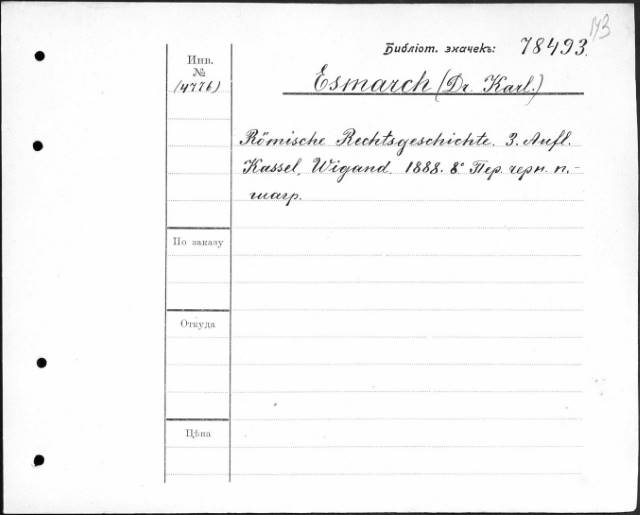 113
Библіот. значекъ: 78493.
Инв.
№
(4776)
Esmarch (Dr. Karl.)
Römische Rechtsgeschichte. 3. Aufl.
Kassel, Wigand. 1888. 8° Пер. черн. п.-
шагр.
По заказу
Откуда
Цѣна